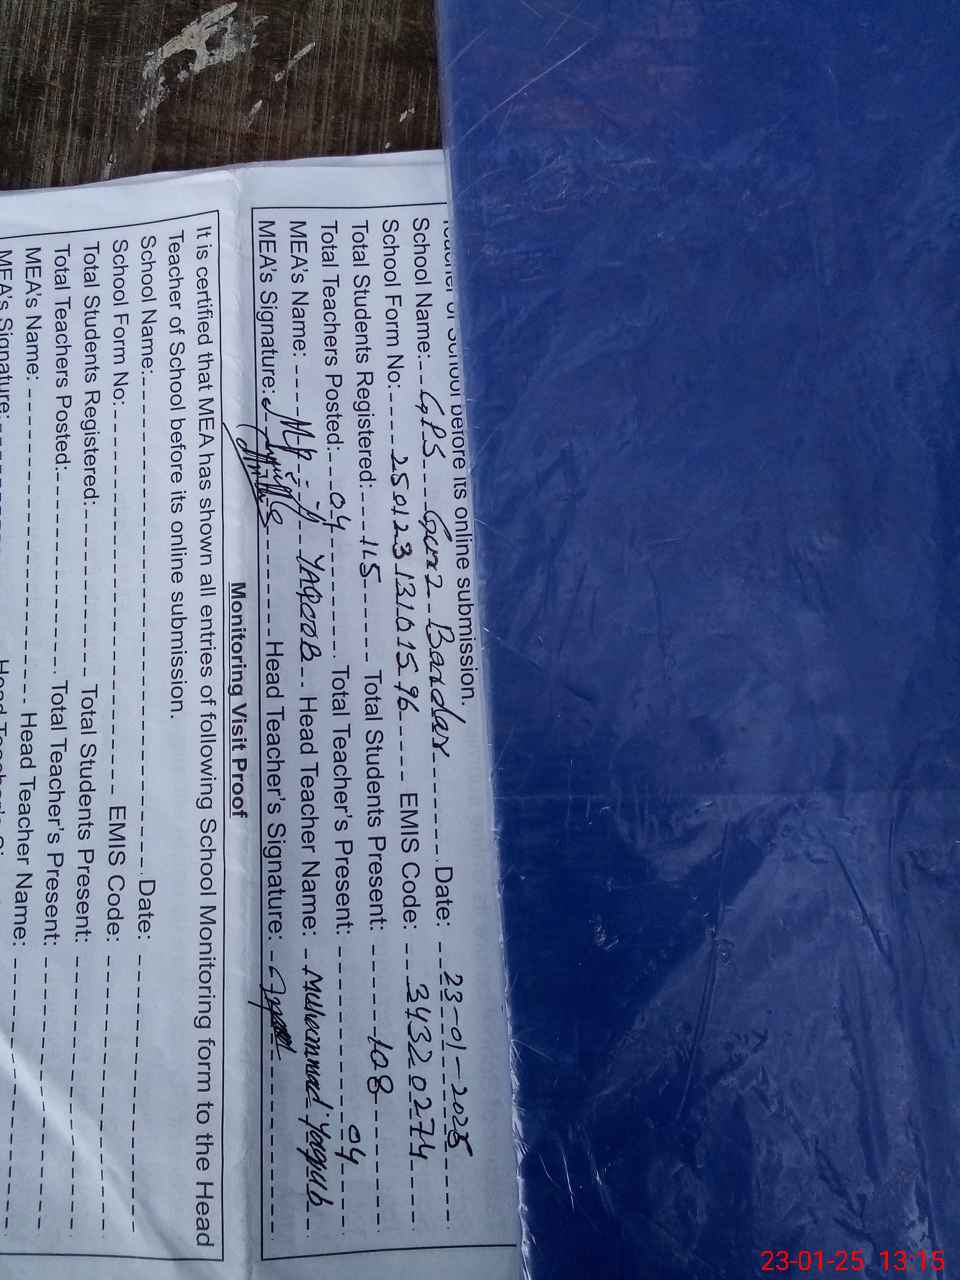 Teacher of School before its online submission.
School Name: GPS Gunz Bardar Date: 23-01-2025
School Form No: 25012313101596 EMIS Code: 34320274
Total Students Registered: 115 Total Students Present: 108
Total Teachers Posted: 04 Total Teacher's Present: 04
MEA's Name: YAQOOB Head Teacher Name: Muhammad Yaqub
MEA's Signature: Head Teacher's Signature:
Monitoring Visit Proof
It is certified that MEA has shown all entries of following School Monitoring form to the Head
Teacher of School before its online submission.
School Name: Date:
School Form No: EMIS Code:
Total Students Registered: Total Students Present:
Total Teachers Posted: Total Teacher's Present:
MEA's Name: Head Teacher Name:
MEA's Signature:
23-01-25 13:15